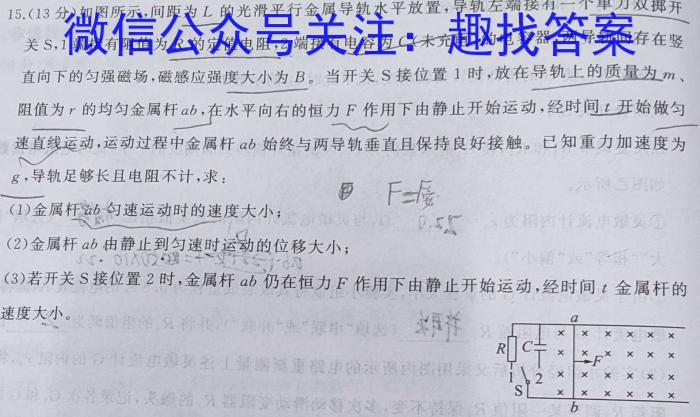 15.(13分)如图所示,间距为 L 的光滑平行金属导轨水平放置,导轨左端接有一个单刀双掷开
关 S,1端接有阻值为 R 的定值电阻,2端接有电容为 C
微信公众号关注:趣找答案
存在竖
直向下的匀强磁场,磁感应强度大小为 B。当开关 S 接位置 1 时,放在导轨上的质量为 m、
阻值为 r 的均匀金属杆 ab,在水平向右的恒力 F 作用下由静止开始运动,经时间 t 开始做匀
速直线运动,运动过程中金属杆 ab 始终与两导轨垂直且保持良好接触。已知重力加速度为
g,导轨足够长且电阻不计,求:
F=F安
(1)金属杆 ab 匀速运动时的速度大小;
(2)金属杆 ab 由静止到匀速时运动的位移大小;
(3)若开关 S 接位置 2 时,金属杆 ab 仍在恒力 F 作用下由静止开始运动,经时间 t 金属杆的
速度大小。
a
R C F
1 2
S
b